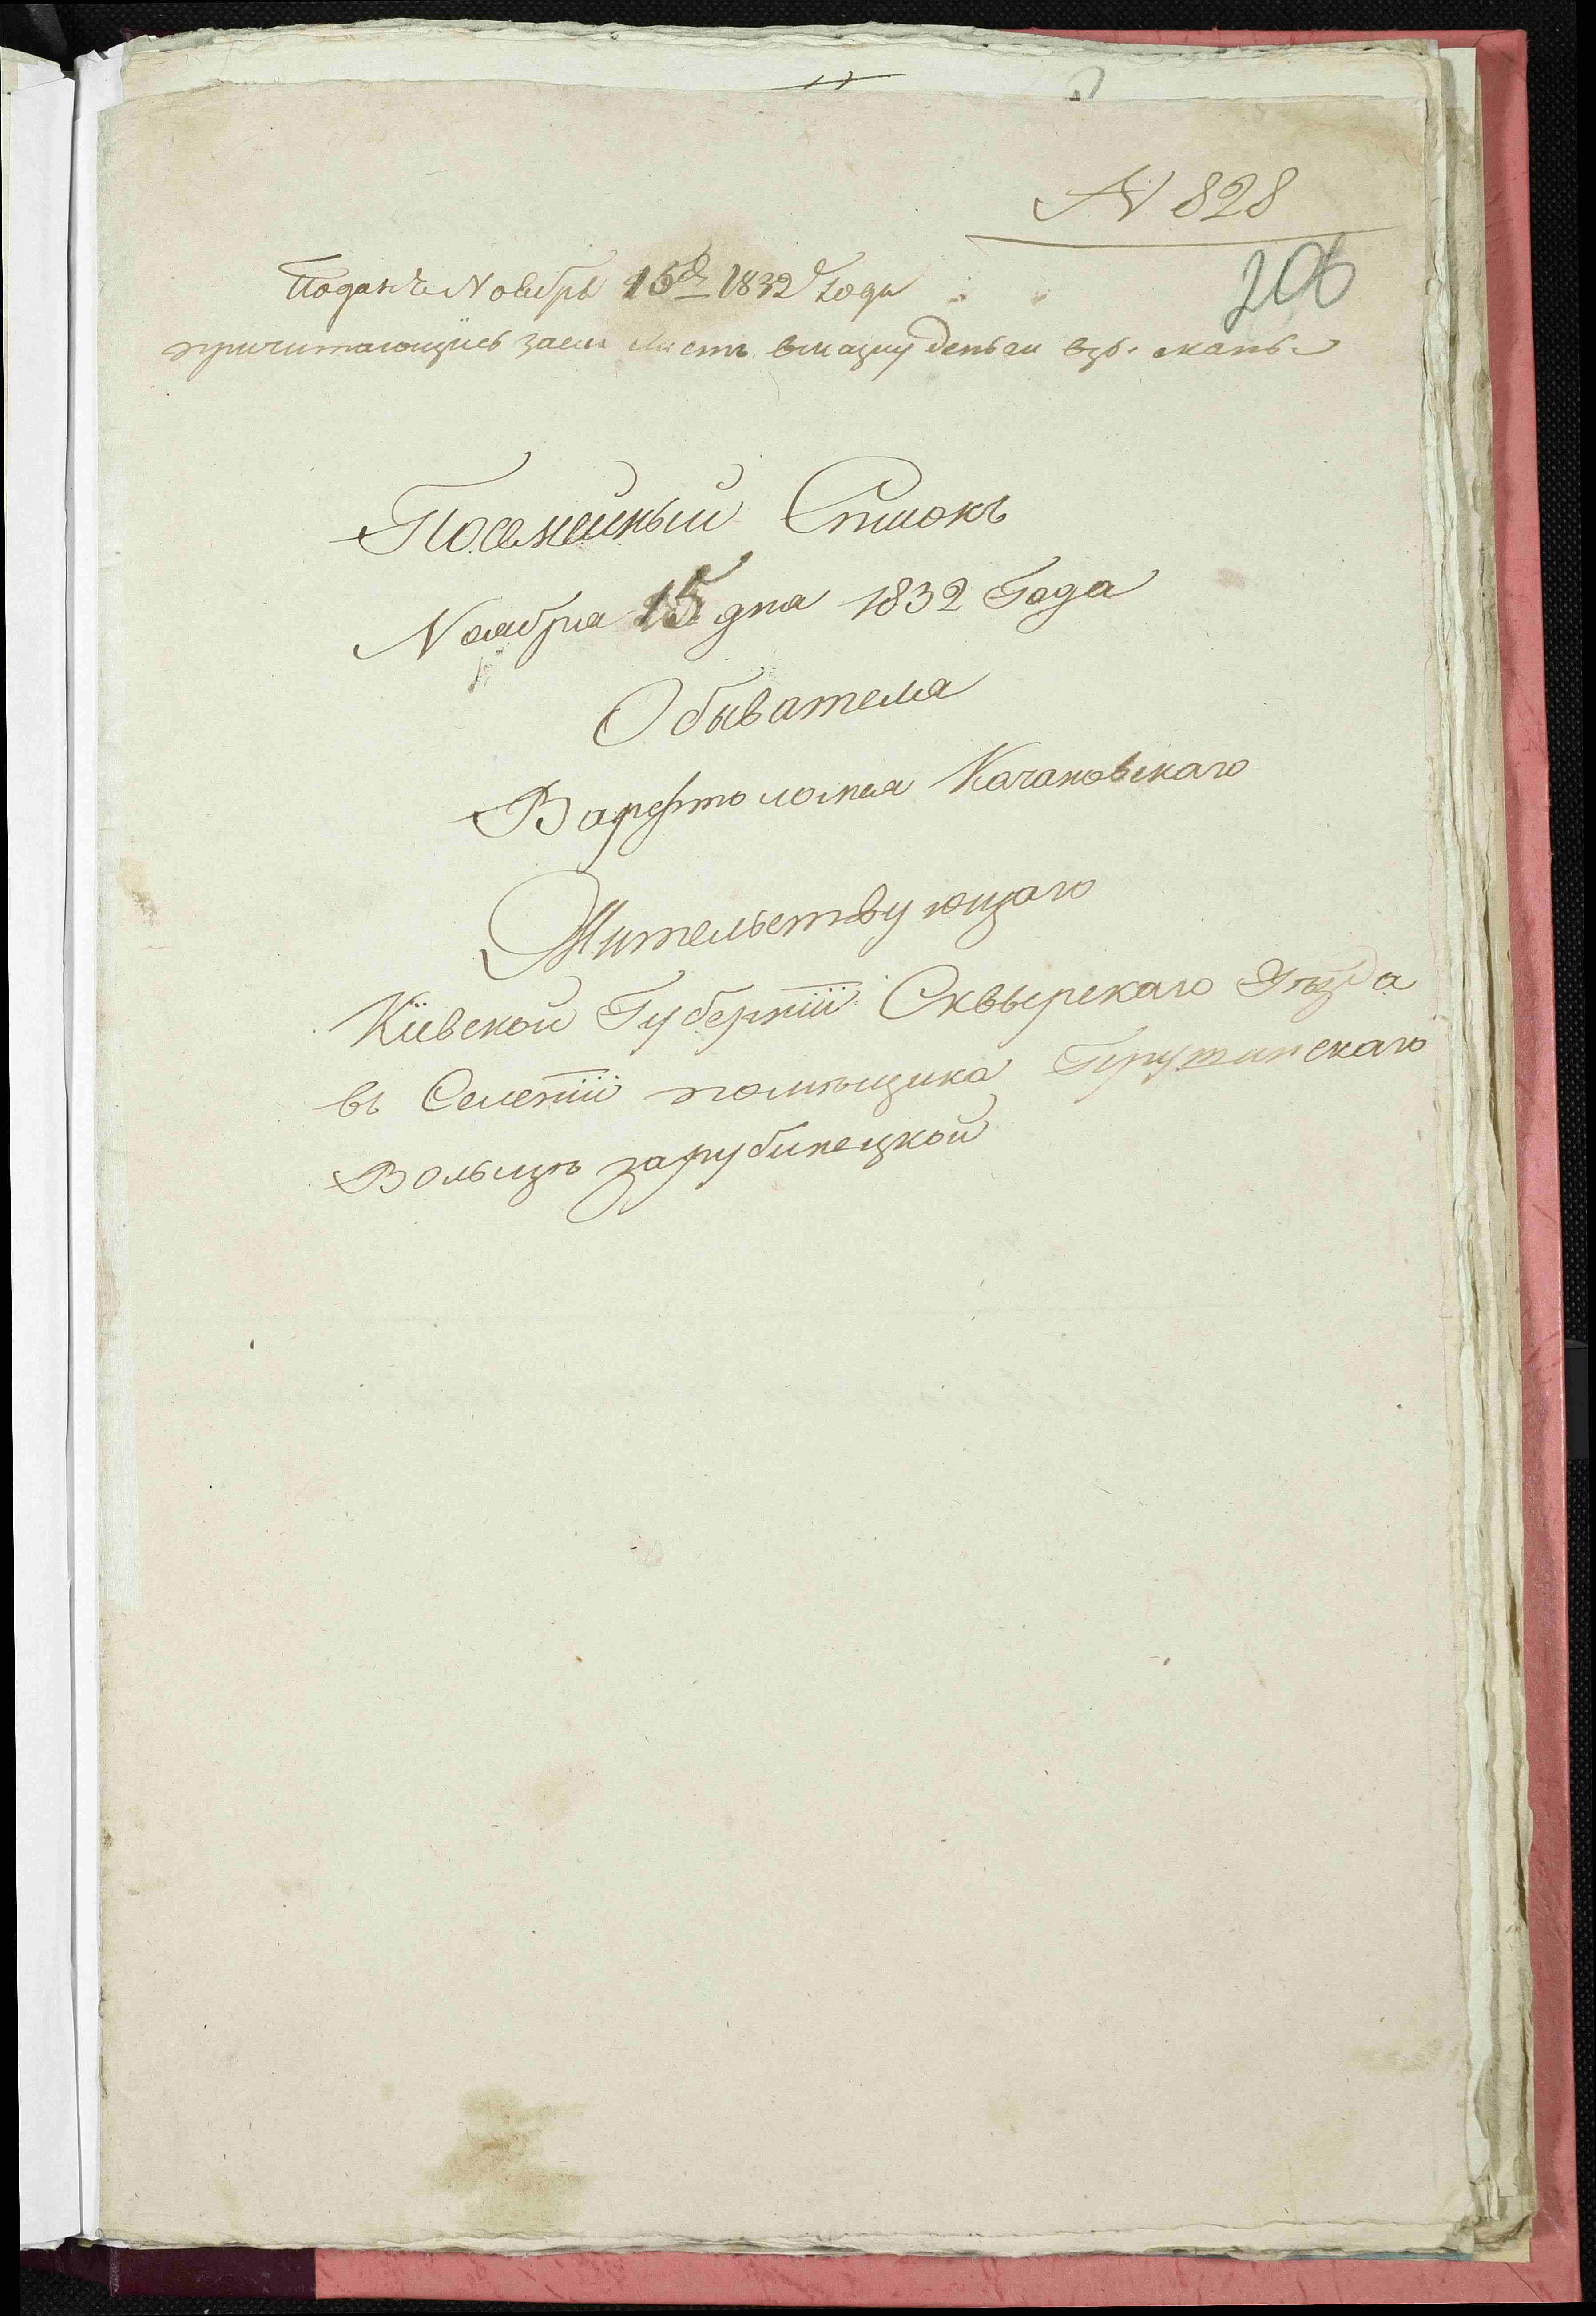 N 828
206
Поданъ Ноября 15го 1832 года
причитающїесь за сей листъ въ казну деньги взысканы
Посемейный Списокъ
Ноября 15 дня 1832 Года
Обывателя
Варфтоломея Качановскаго
Жительствующаго
Кіевской Губерніи Сквырскаго Уѣзда
въ Селеніи помѣщика
Вольицѣ зарубинецкой